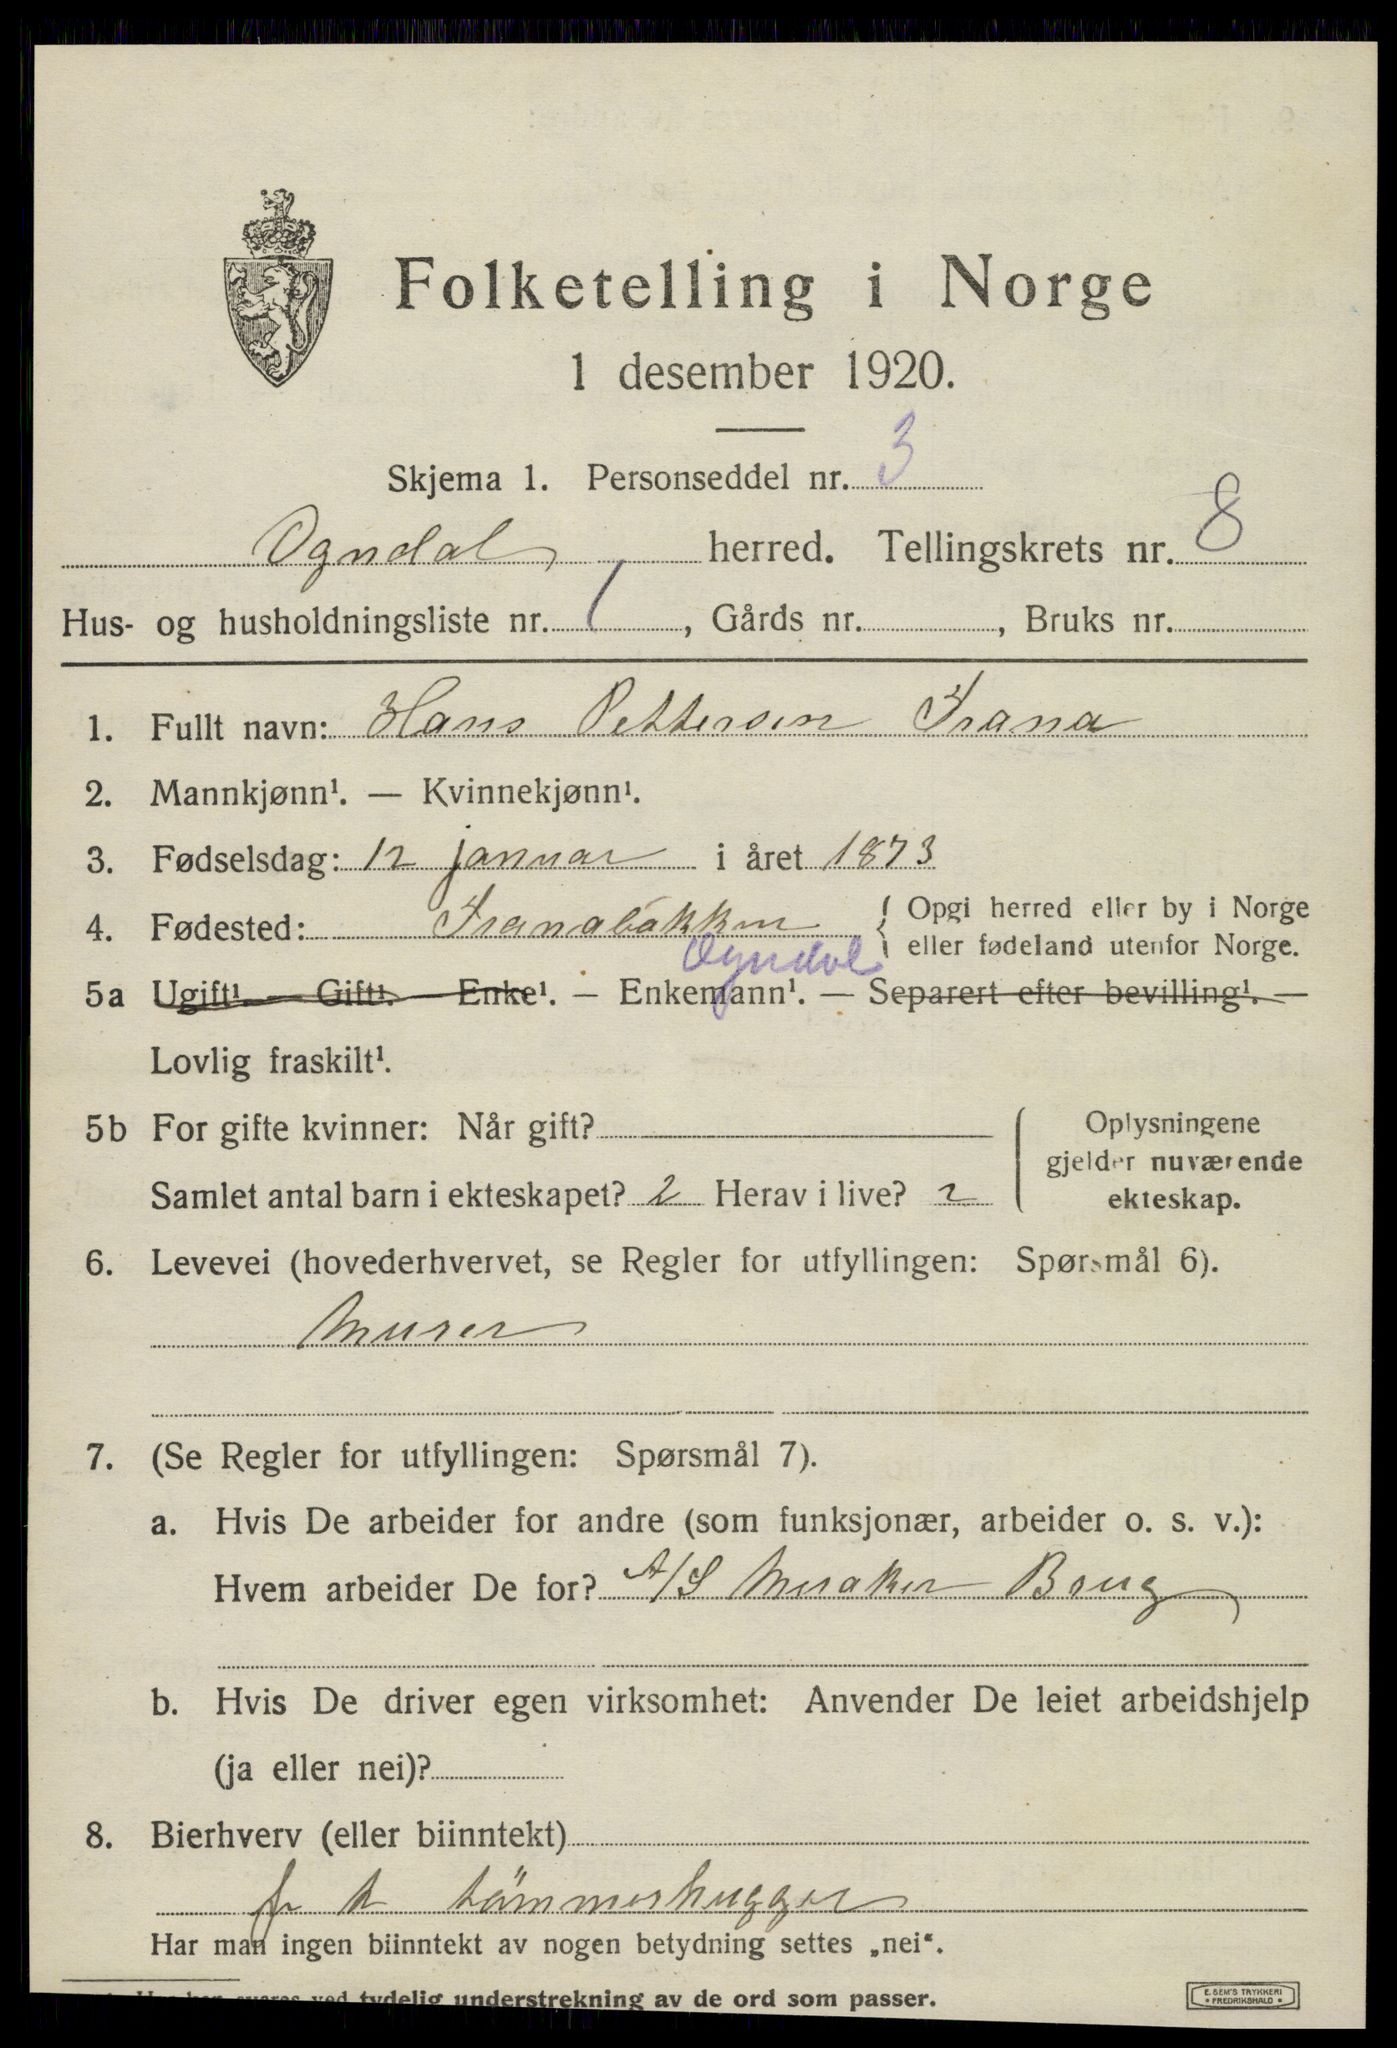 Folketelling i Norge
1 desember 1920.
Skjema 1. Personseddel nr. 3
Ogndal herred. Tellingskrets nr. 8
Hus- og husholdningsliste nr. 1, Gårds nr. , Bruks nr.
1. Fullt navn: Hans Pettersen Frana
2. Mannkjønn¹. — Kvinnekjønn¹.
3. Fødselsdag: 12 januar i året 1873
4. Fødested: Franabakken { Opgi herred eller by i Norge
eller fødeland utenfor Norge.
Ogndal
5a Ugift¹. — Gift¹. — Enke¹. — Enkemann¹. — Separert efter bevilling¹. —
Lovlig fraskilt¹.
5b For gifte kvinner: Når gift?
Samlet antal barn i ekteskapet? 2 Herav i live? 2
Oplysningene
gjelder nuværende
ekteskap.
6. Levevei (hovederhvervet, se Regler for utfyllingen: Spørsmål 6).
Murer
7. (Se Regler for utfyllingen: Spørsmål 7).
a. Hvis De arbeider for andre (som funksjonær, arbeider o. s. v.):
Hvem arbeider De for? A/S Meraker Brug
b. Hvis De driver egen virksomhet: Anvender De leiet arbeidshjelp
(ja eller nei)?
8. Bierhverv (eller biinntekt)
tömmerhugger
Har man ingen biinntekt av nogen betydning settes „nei“.
ved tydelig understrekning av de ord som passer.
E. SEM'S TRYKKERI
• FREDRIKSHALD •